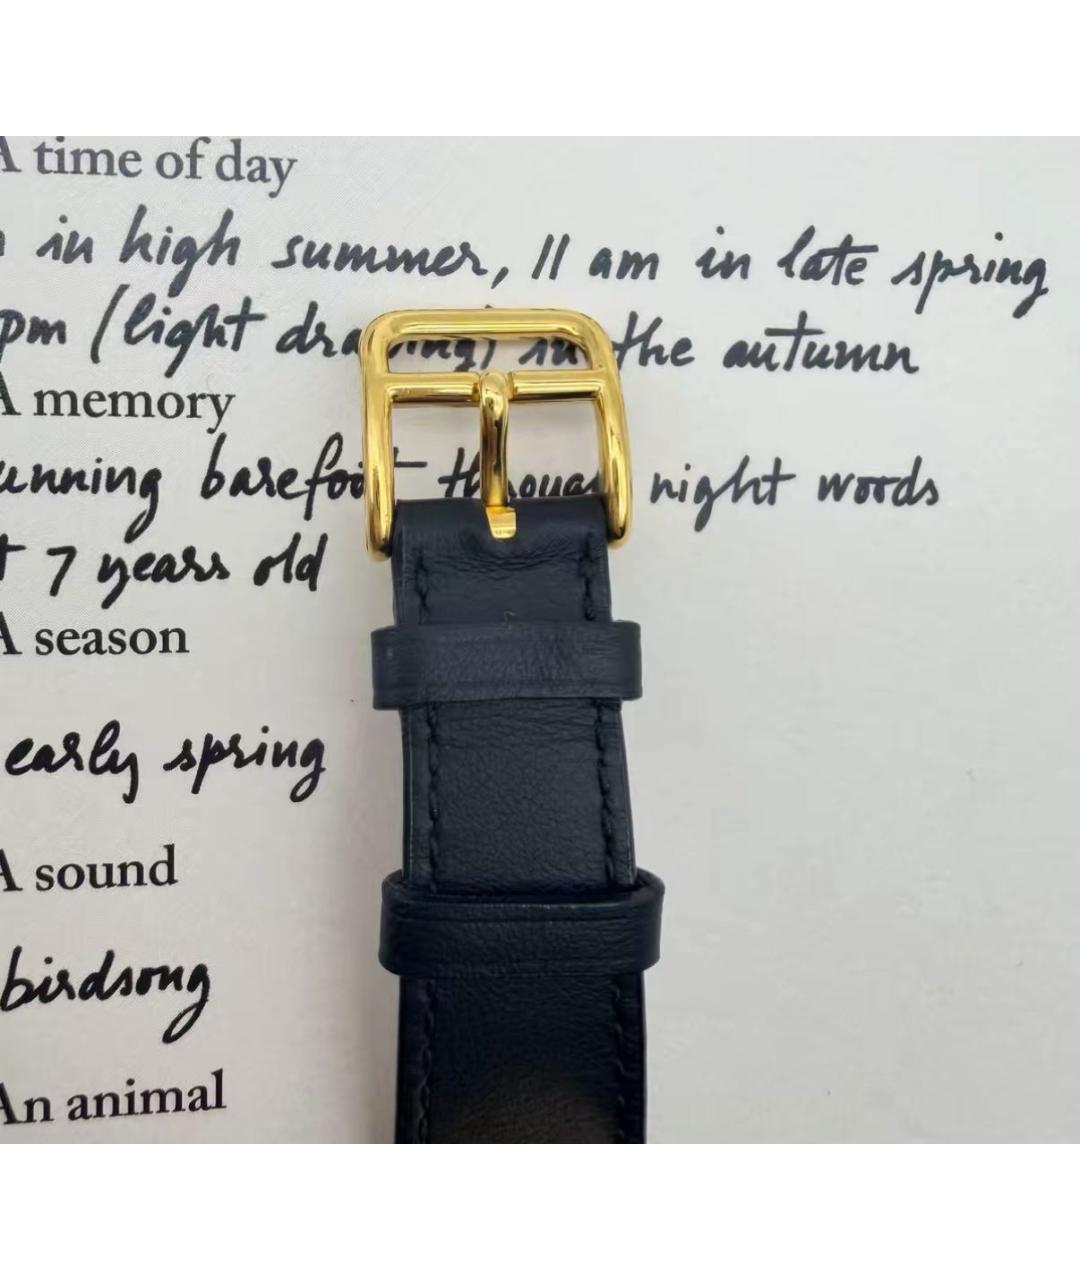 A time of day
in high summer, 11 am in late spring
pm (light drawing) in the autumn
A memory
running barefoot through night words
7 years old
A season
early spring
A sound
birdsong
An animal